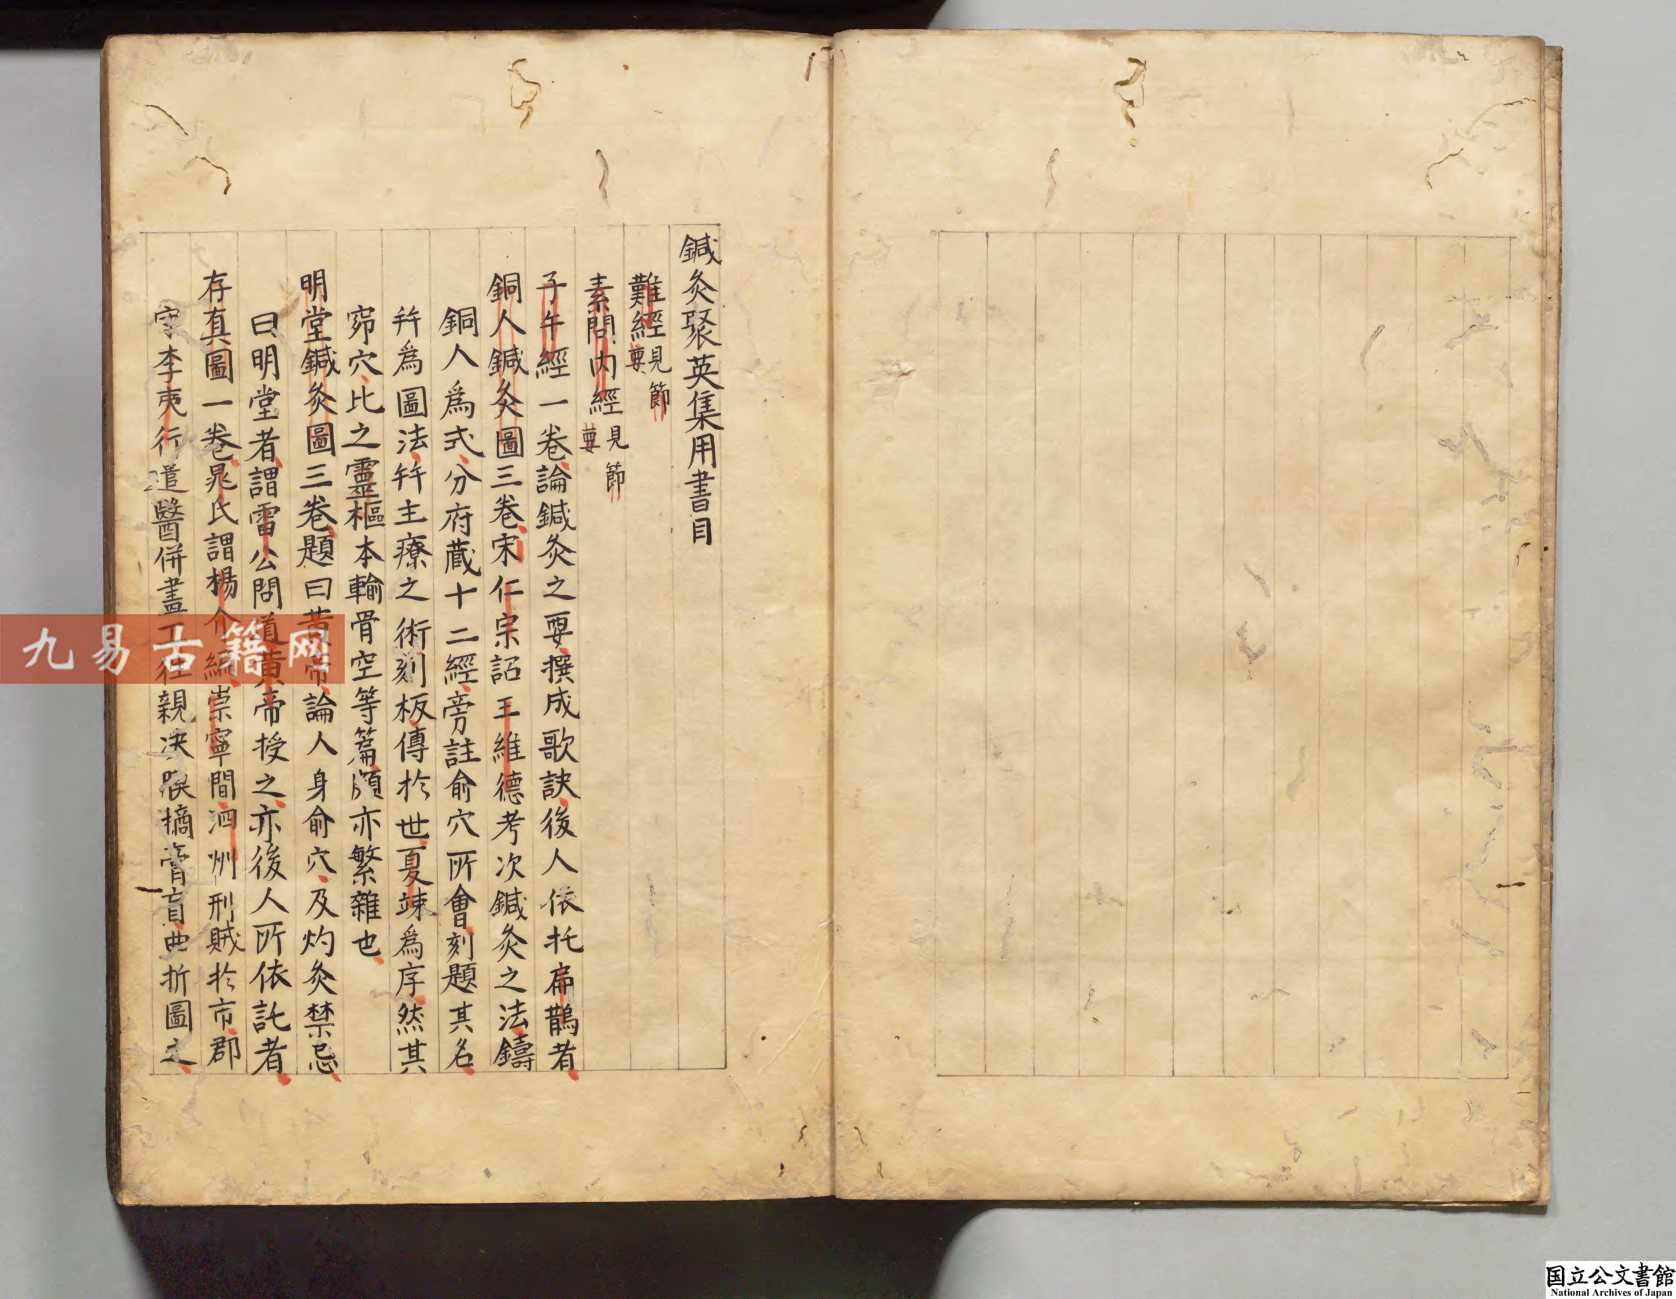 鍼灸聚英集用書目
難經見節要
素問內經見節要
子午經一卷論鍼灸之要撰成歌訣後人依托扁鵲者
銅人鍼灸圖三卷宋仁宗詔王維德考次鍼灸之法鑄
銅人為式分府藏十二經旁註俞穴所會刻題其名
并為圖法并主療之術刻板傳於世夏竦為序然其
窌穴比之靈樞本輸骨空等篇頗亦繁雜也
明堂鍼灸圖三卷題曰黃帝論人身俞穴及灼灸禁忌
曰明堂者謂雷公問道黃帝授之亦後人所依託者
存真圖一卷晁氏謂楊介編崇寧間泗州刑賊於市郡
守李夷行遣醫併畫工往親决膜摘膏肓曲折圖之
九易古籍网
国立公文書館
National Archives of Japan